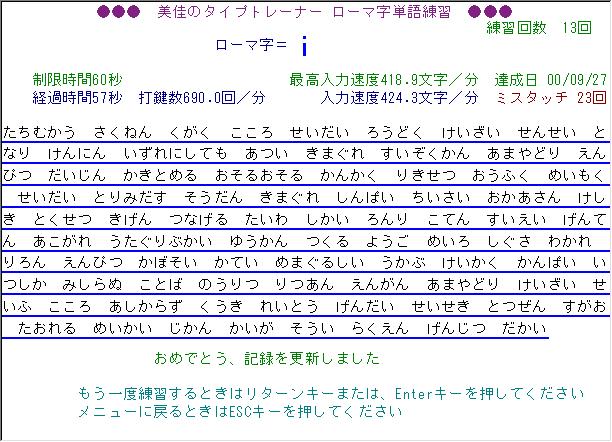 ●●● 美佳のタイプトレーナー ローマ字単語練習 ●●●
練習回数 13回
ローマ字＝ i
制限時間60秒 最高入力速度418.9文字／分 達成日 00/09/27
経過時間57秒 打鍵数690.0回／分 入力速度424.3文字／分 ミスタッチ 23回
たちむかう さくねん くがく こころ せいだい ろうどく けいざい せんせい と
なり けんにん いずれにしても あつい きまぐれ すいぞくかん あまやどり えん
ぴつ だいじん かきとめる おそるおそる かんかく りきせつ おうふく めいもく
せいだい とりみだす そうだん きまぐれ しんぱい ちいさい おかあさん けし
き とくせつ きげん つなげる たいわ しかい ろんり こてん すいえい げんて
ん あこがれ うたぐりぶかい ゆうかん つくる ようご めいろ しぐさ わかれ
りろん えんぴつ かぼそい かてい めまぐるしい うかぶ けいかく かんぱい い
つしか みしらぬ ことば のうりつ りつあん えんがん あまやどり けいざい せ
いふ こころ あしからず くうき れいとう げんだい せいせき とつぜん すがお
たおれる めいかい じかん かいが そうい らくえん げんじつ だかい
おめでとう、記録を更新しました
もう一度練習するときはリターンキーまたは、Enterキーを押してください
メニューに戻るときはESCキーを押してください